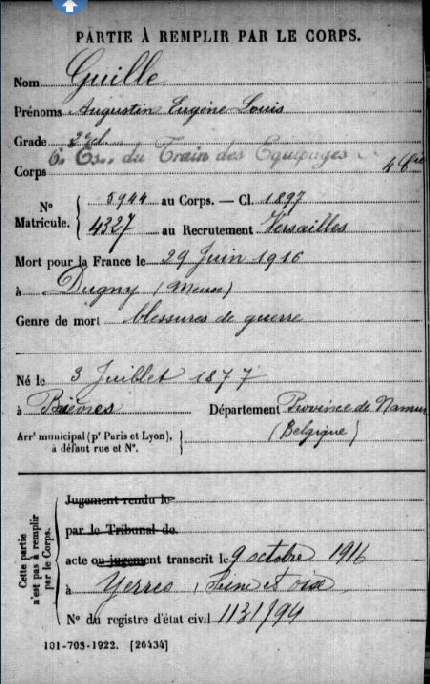 PARTIE À REMPLIR PAR LE CORPS.
Nom Guille
Prénoms Augustin Eugène Louis
Grade 2e cl.
6e Es.. du Train des Equipages 4 Cie
Corps
N° Matricule. { 5944 au Corps. — Cl. 1897
4327 au Recrutement Versailles
Mort pour la France le 29 Juin 1916
à Dugny (Meuse)
Genre de mort blessures de guerre
Né le 3 Juillet 1877
à Bièvres Département Province de Namur
(Belgique)
Arrt municipal (pr Paris et Lyon), à défaut rue et N°. }
Cette partie n'est pas à remplir par le Corps.
Jugement rendu le
par le Tribunal de
acte ou jugement transcrit le 9 octobre 1916
à Yerres, Seine et Oise
N° du registre d'état civil 1131/94
101-703-1922. [26434]